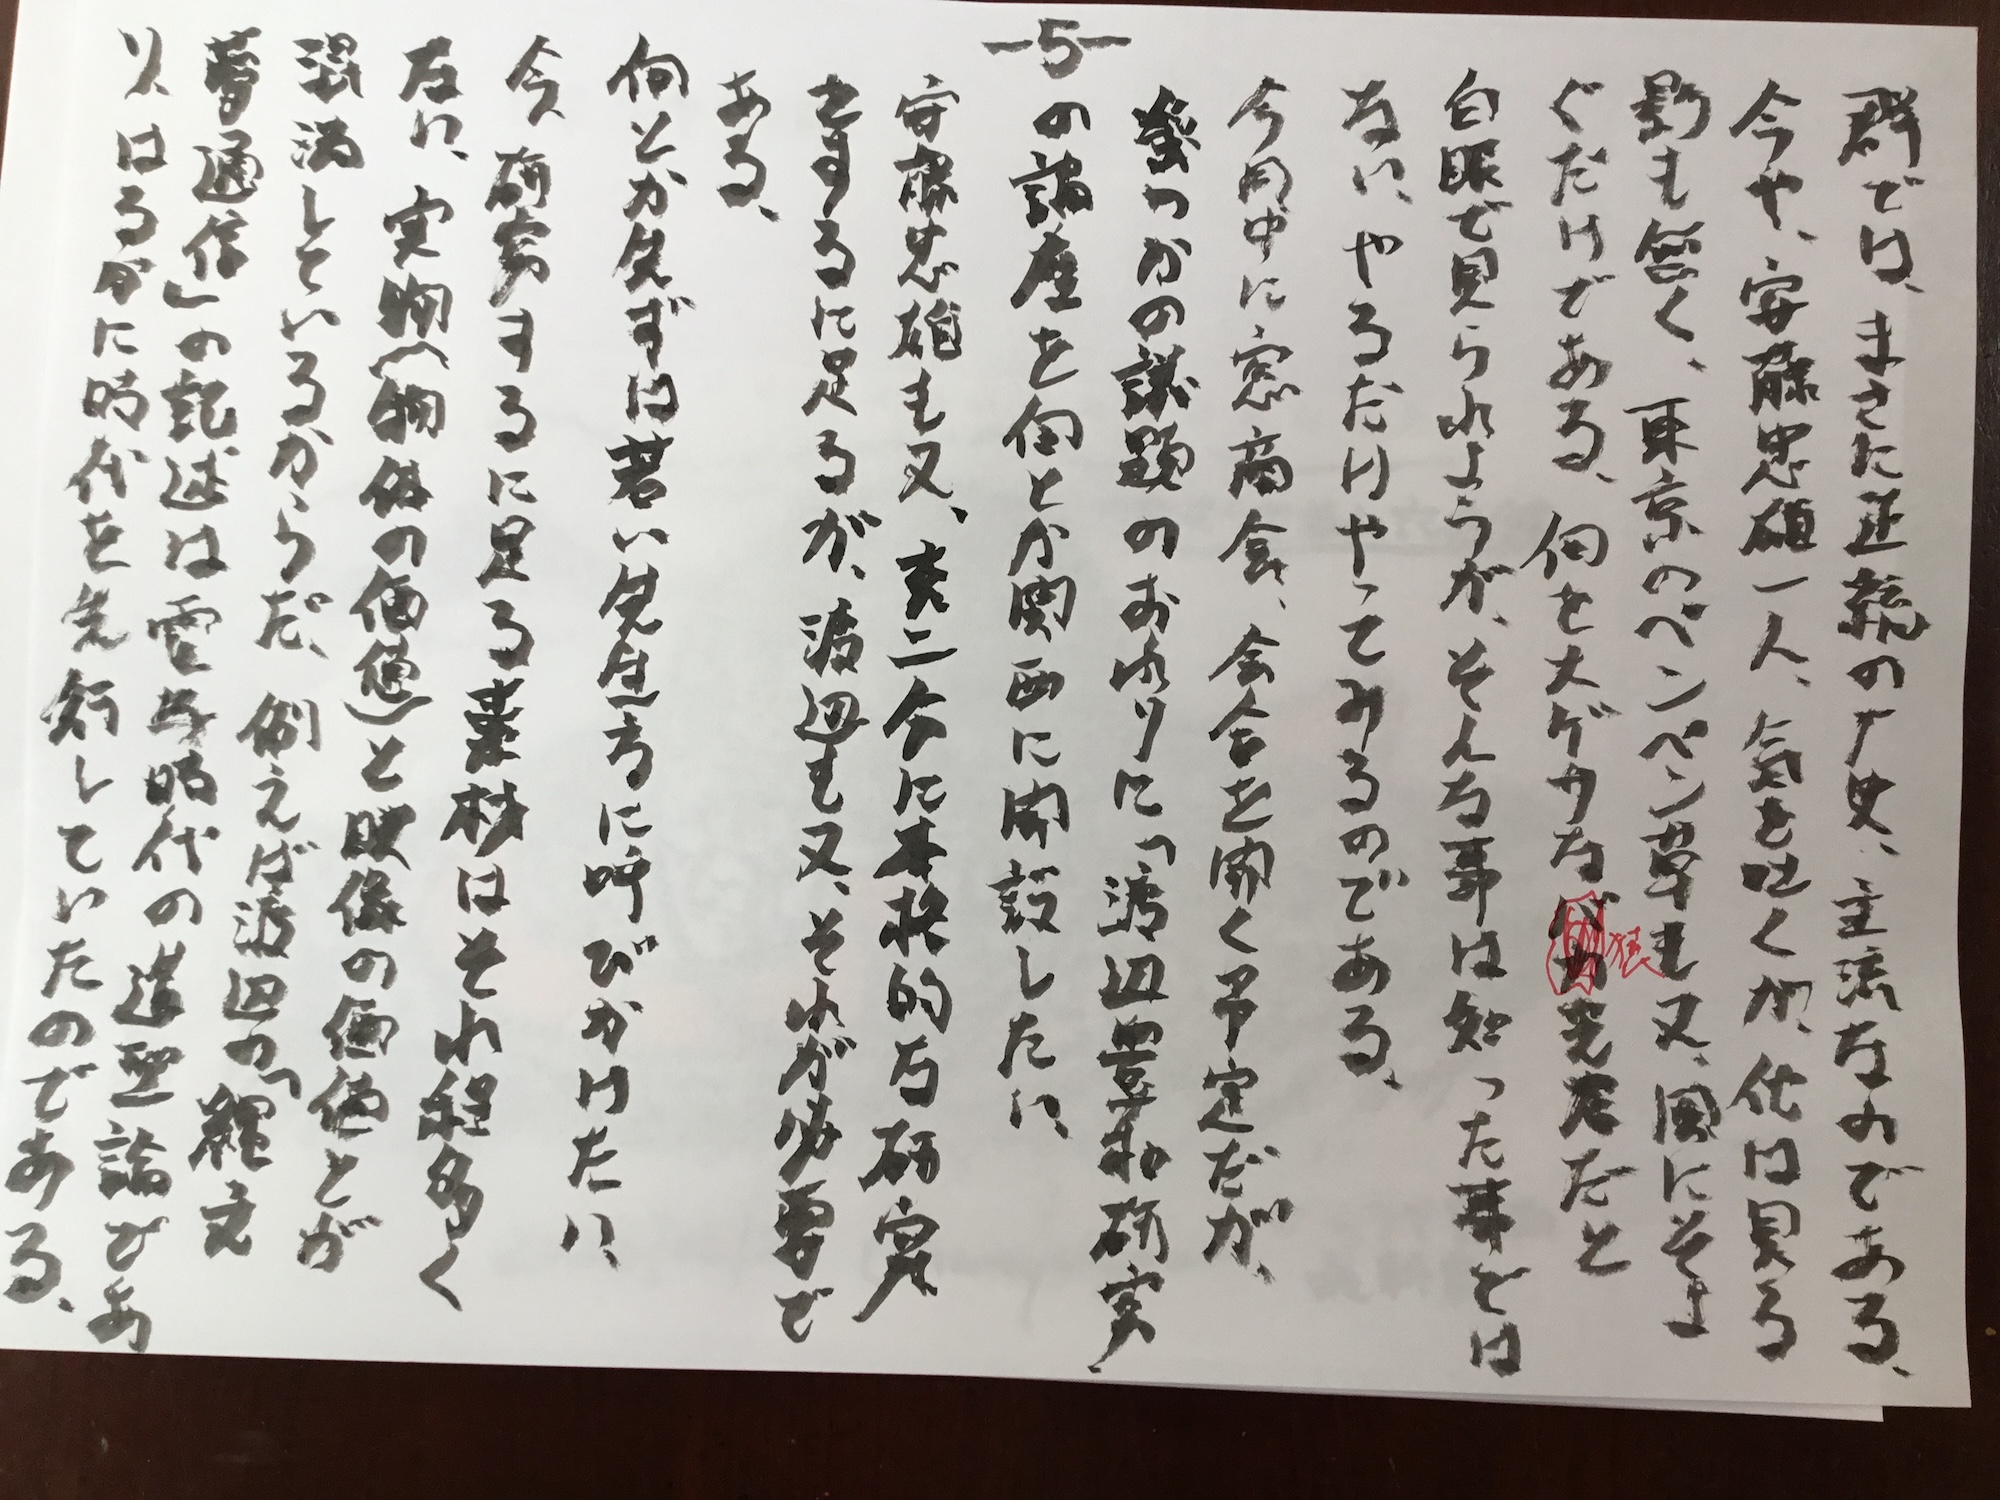 -5-
群ではまさた正統の十丈、主流なのである、
今や、安藤忠雄一人、気を吐くが、他は見る
影も無く、東京のペンペン草も又、風にそよ
ぐだけである、何を大ゲサな 猿 君だと
白眼で見られようが、そんな事は知った事では
ない、やるだけやってみるのである、
今月中に窓商会、会合を開く予定だが、
幾つかの議題のおわりに「渡辺豊和研究」
の講座を何とか関西に開設したい、
安藤忠雄も又、充二分に本格的な研究
をするに足るが、渡辺も又、それが必要で
ある、
何とか先ずは若い先生方に呼びかけたい、
今、研究するに足る素材はそれ程多く
ない、実物(物体の価値)と映像の価値とが
混淆しているからだ、例えば渡辺の「縄文
夢通信」の記述は電子時代の遺跡論であ
り、はるかに時代を先行していたのである、